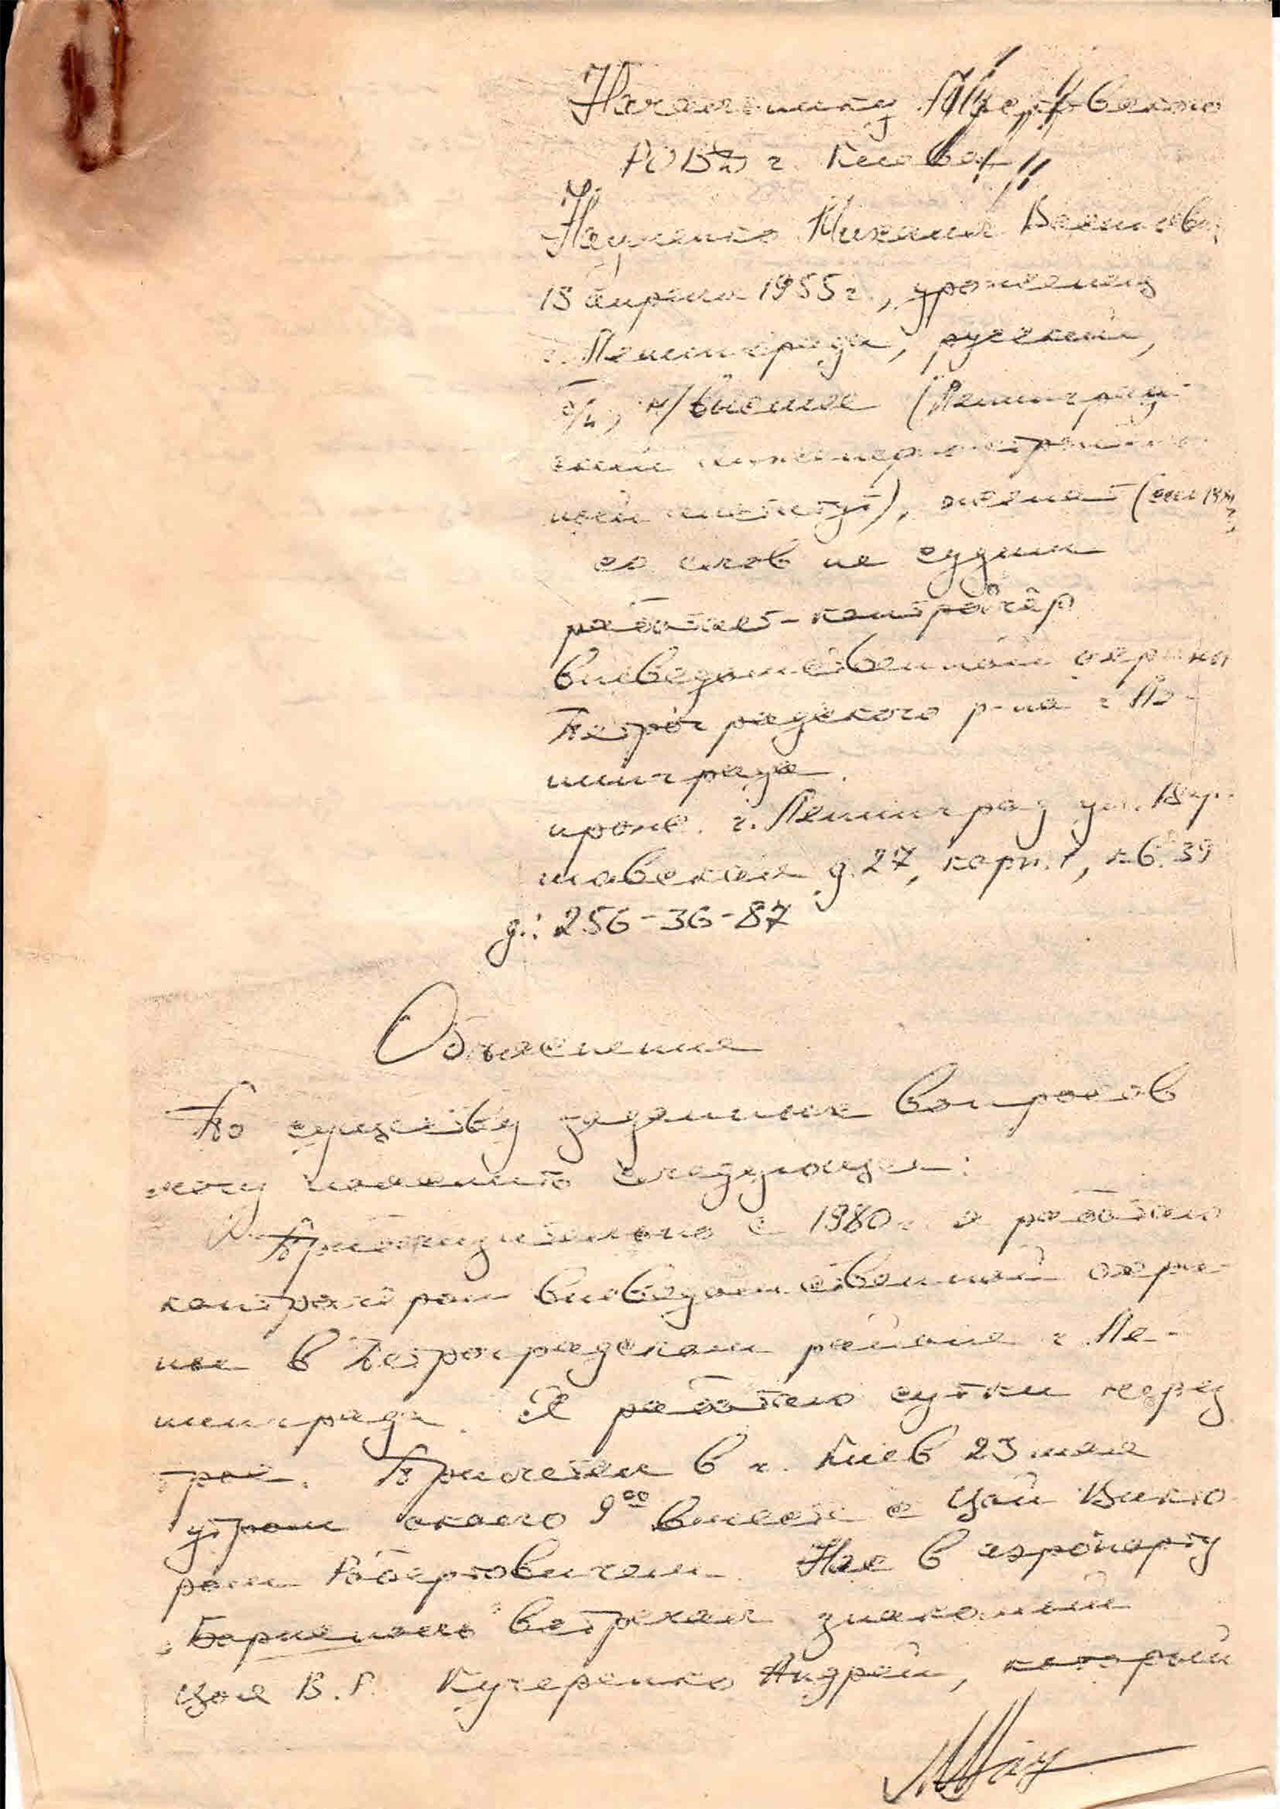 Начальнику
РОВД г. Киева
Науменко Михаил Васильев
13 апреля 1955 г., уроженец
г. Ленинграда, русский,
б/п, н/высшее (Ленинград
ский инженерно строитель
ный институт), женат
со слов не судим
работает - контролёр
вневедомственной охраны
Петроградского р-на г. Ле-
нинграда.
прож. г. Ленинград ул. Вар-
шавская д. 27, корп. 1, кв. 39
д.: 256-36-87
Объяснение
По существу заданных вопросов
могу пояснить следующее:
Приблизительно с 1980 г. я работаю
контролёром вневедомственной охра-
ны в Петроградском районе г. Ле-
нинграда. Я работаю сутки через
трое. Прилетел в г. Киев 23 мая
утром около 9⁰⁰ вместе с Цой Викто
ром Робертовичем. Нас в аэропорту
"Борисполь" встречал знакомый
Цоя В. Р. Кучеренко Андрей, который